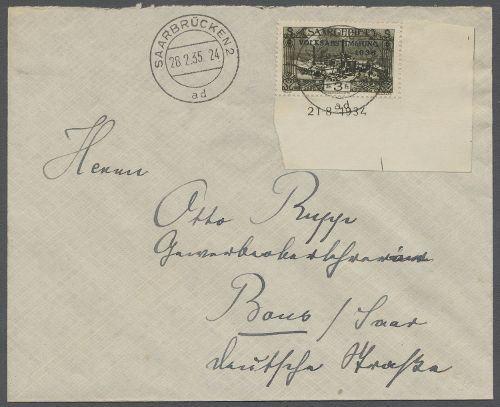 SAARBRÜCKEN 2
28.2.35. 24
ad
SAARGEBIET
VOLKSABSTIMMUNG
1935
3
ad
21 8 1934
Herrn
Otto Rupp
Gewerbeoberlehrer
Bous / Saar
Deutsche Straße